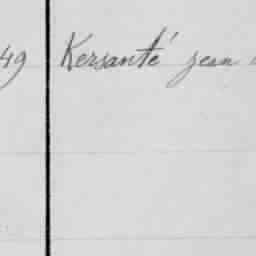 49 Kersanté jean